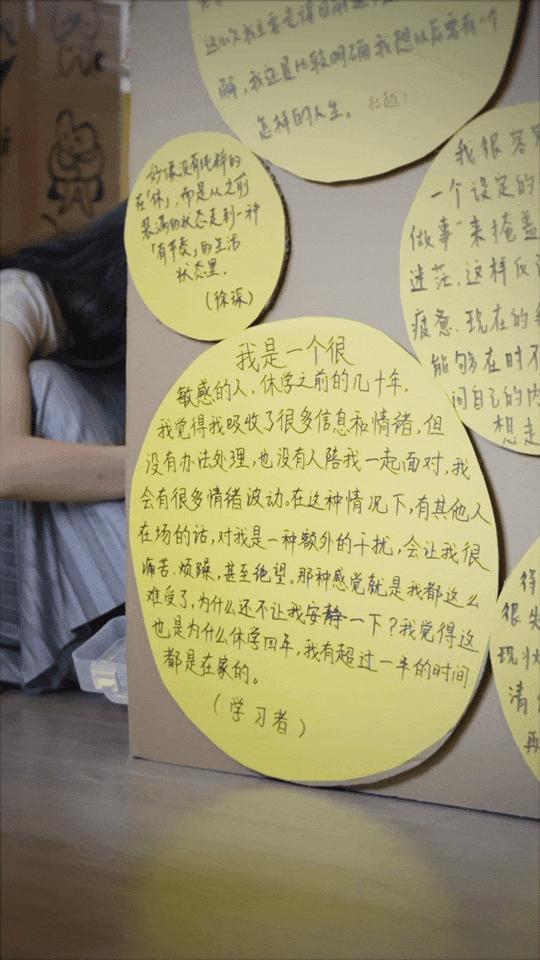 这次我主要是得自前
解，我还是比较明确我想以后要有一个
怎样的人生。
好像没有纯粹的
在「休」，而是从之前
装满的状态走到一种
「有节奏」的生活
状态里。
（徐深）
我很容易
一个设定的
做事"来掩盖
迷茫，这样反
疲惫。现在的
能够在时不
问自己的内
想走
我是一个很
敏感的人，休学之前的几十年，
我觉得我吸收了很多信息和情绪，但
没有办法处理，也没有人陪我一起面对，我
会有很多情绪波动。在这种情况下，有其他人
在场的话，对我是一种额外的干扰，会让我很
痛苦、烦躁，甚至绝望。那种感觉就是我都这么
难受了，为什么还不让我安静一下？我觉得这
也是为什么休学四年，我有超过一半的时间
都是在家的。
（学习者）
很失
现状
清
再